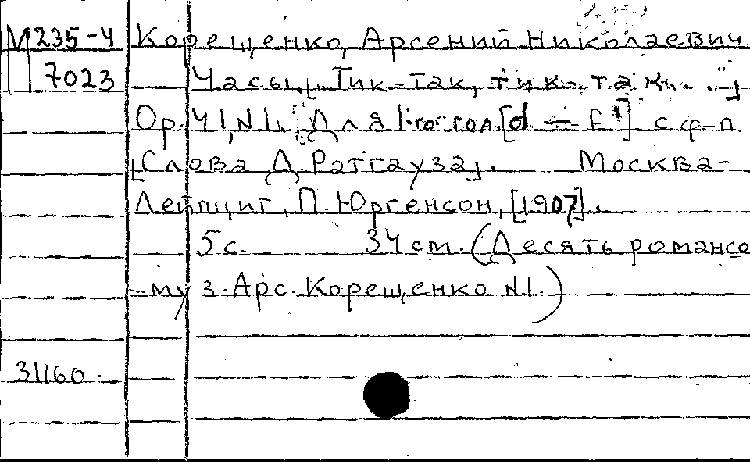 М 235-4 Корещенко, Арсений Николаевич
7023 Часы. [„Тик-так, тик-так...“]
Op. 41, N1. Для 1-го гол. [d — f²] с ф-п.
[Слова Д. Ратгауза]. Москва-
Лейпциг, П. Юргенсон, [1907].
5 с. 34 см. (Десять романсо
муз. Арс. Корещенко N1.)
31160